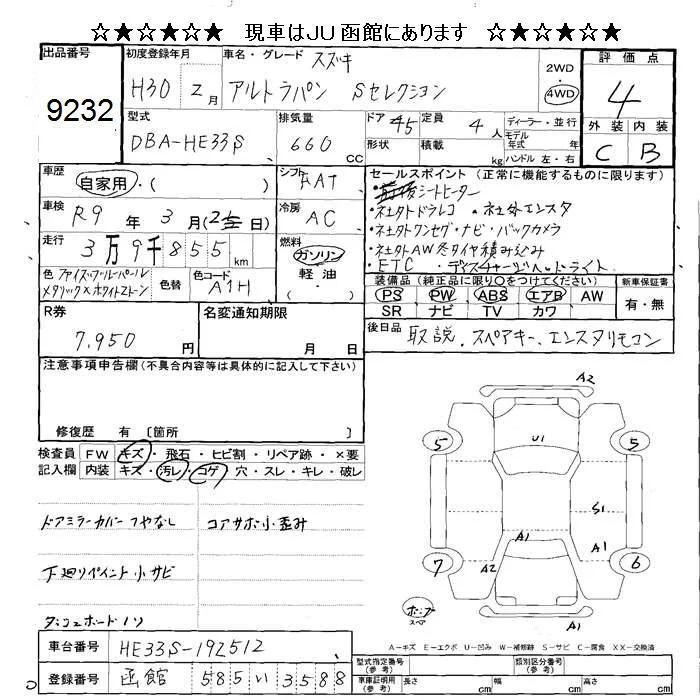 ☆★☆★☆ 現車はJU函館にあります ☆★☆★☆
出品番号 9232
初度登録年月 H30 2月
車名・グレード スズキ
アルトラパン Sセレクション
2WD 4WD
評価点 4
外装 内装
C B
型式 DBA-HE33S
排気量 660 CC
ドア 45 定員 4人
形状 積載 kg
ディーラー・並行
モデル年式 年
ハンドル 左・右
車歴 自家用・( )
シフト FAT
車検 R9年 3月 (2 日)
冷房 AC
走行 3万9千855km
燃料 ガソリン 軽油 ( )
色 ファイズ・ブルーパール
メタリック×ホワイト2トーン
色替
色コード A1H
セールスポイント (正常に機能するものに限ります)
・シートヒーター
・社外ドラレコ ・社外エンスタ
・社外ワンセグ・ナビ・バックカメラ
・社外AW冬タイヤ積み込み
・ETC ・ディスチャージヘッドライト
装備品(純正品に限り○をつけてください)
PS PW ABS エアB AW
SR ナビ TV カワ
新車保証書 有・無
R券 7,950円
名変通知期限 月 日
後日品 取説、スペアキー、エンスタリモコン
注意事項申告欄(不具合内容等は具体的に記入して下さい)
修復歴 有 〔箇所 〕
検査員記入欄
FW キズ・飛石・ヒビ割・リペア跡・×要
内装 キズ・汚レ・コゲ・穴・スレ・キレ・破レ
ドアミラーカバーつやなし コアサポ小歪み
下廻りペイント小サビ
A2
U1
5 5
S1
A1 A1
7 A2 6
A1
スペア
A-キズ E-エクボ U-凹み W-補修跡 S-サビ C-腐食 XX-交換済
車台番号 HE33S-192512
登録番号 函館 585 い 3588
型式指定番号(参考) 類別区分番号(参考)
車庫証明用(参考) 長さ cm 幅 cm 高さ cm